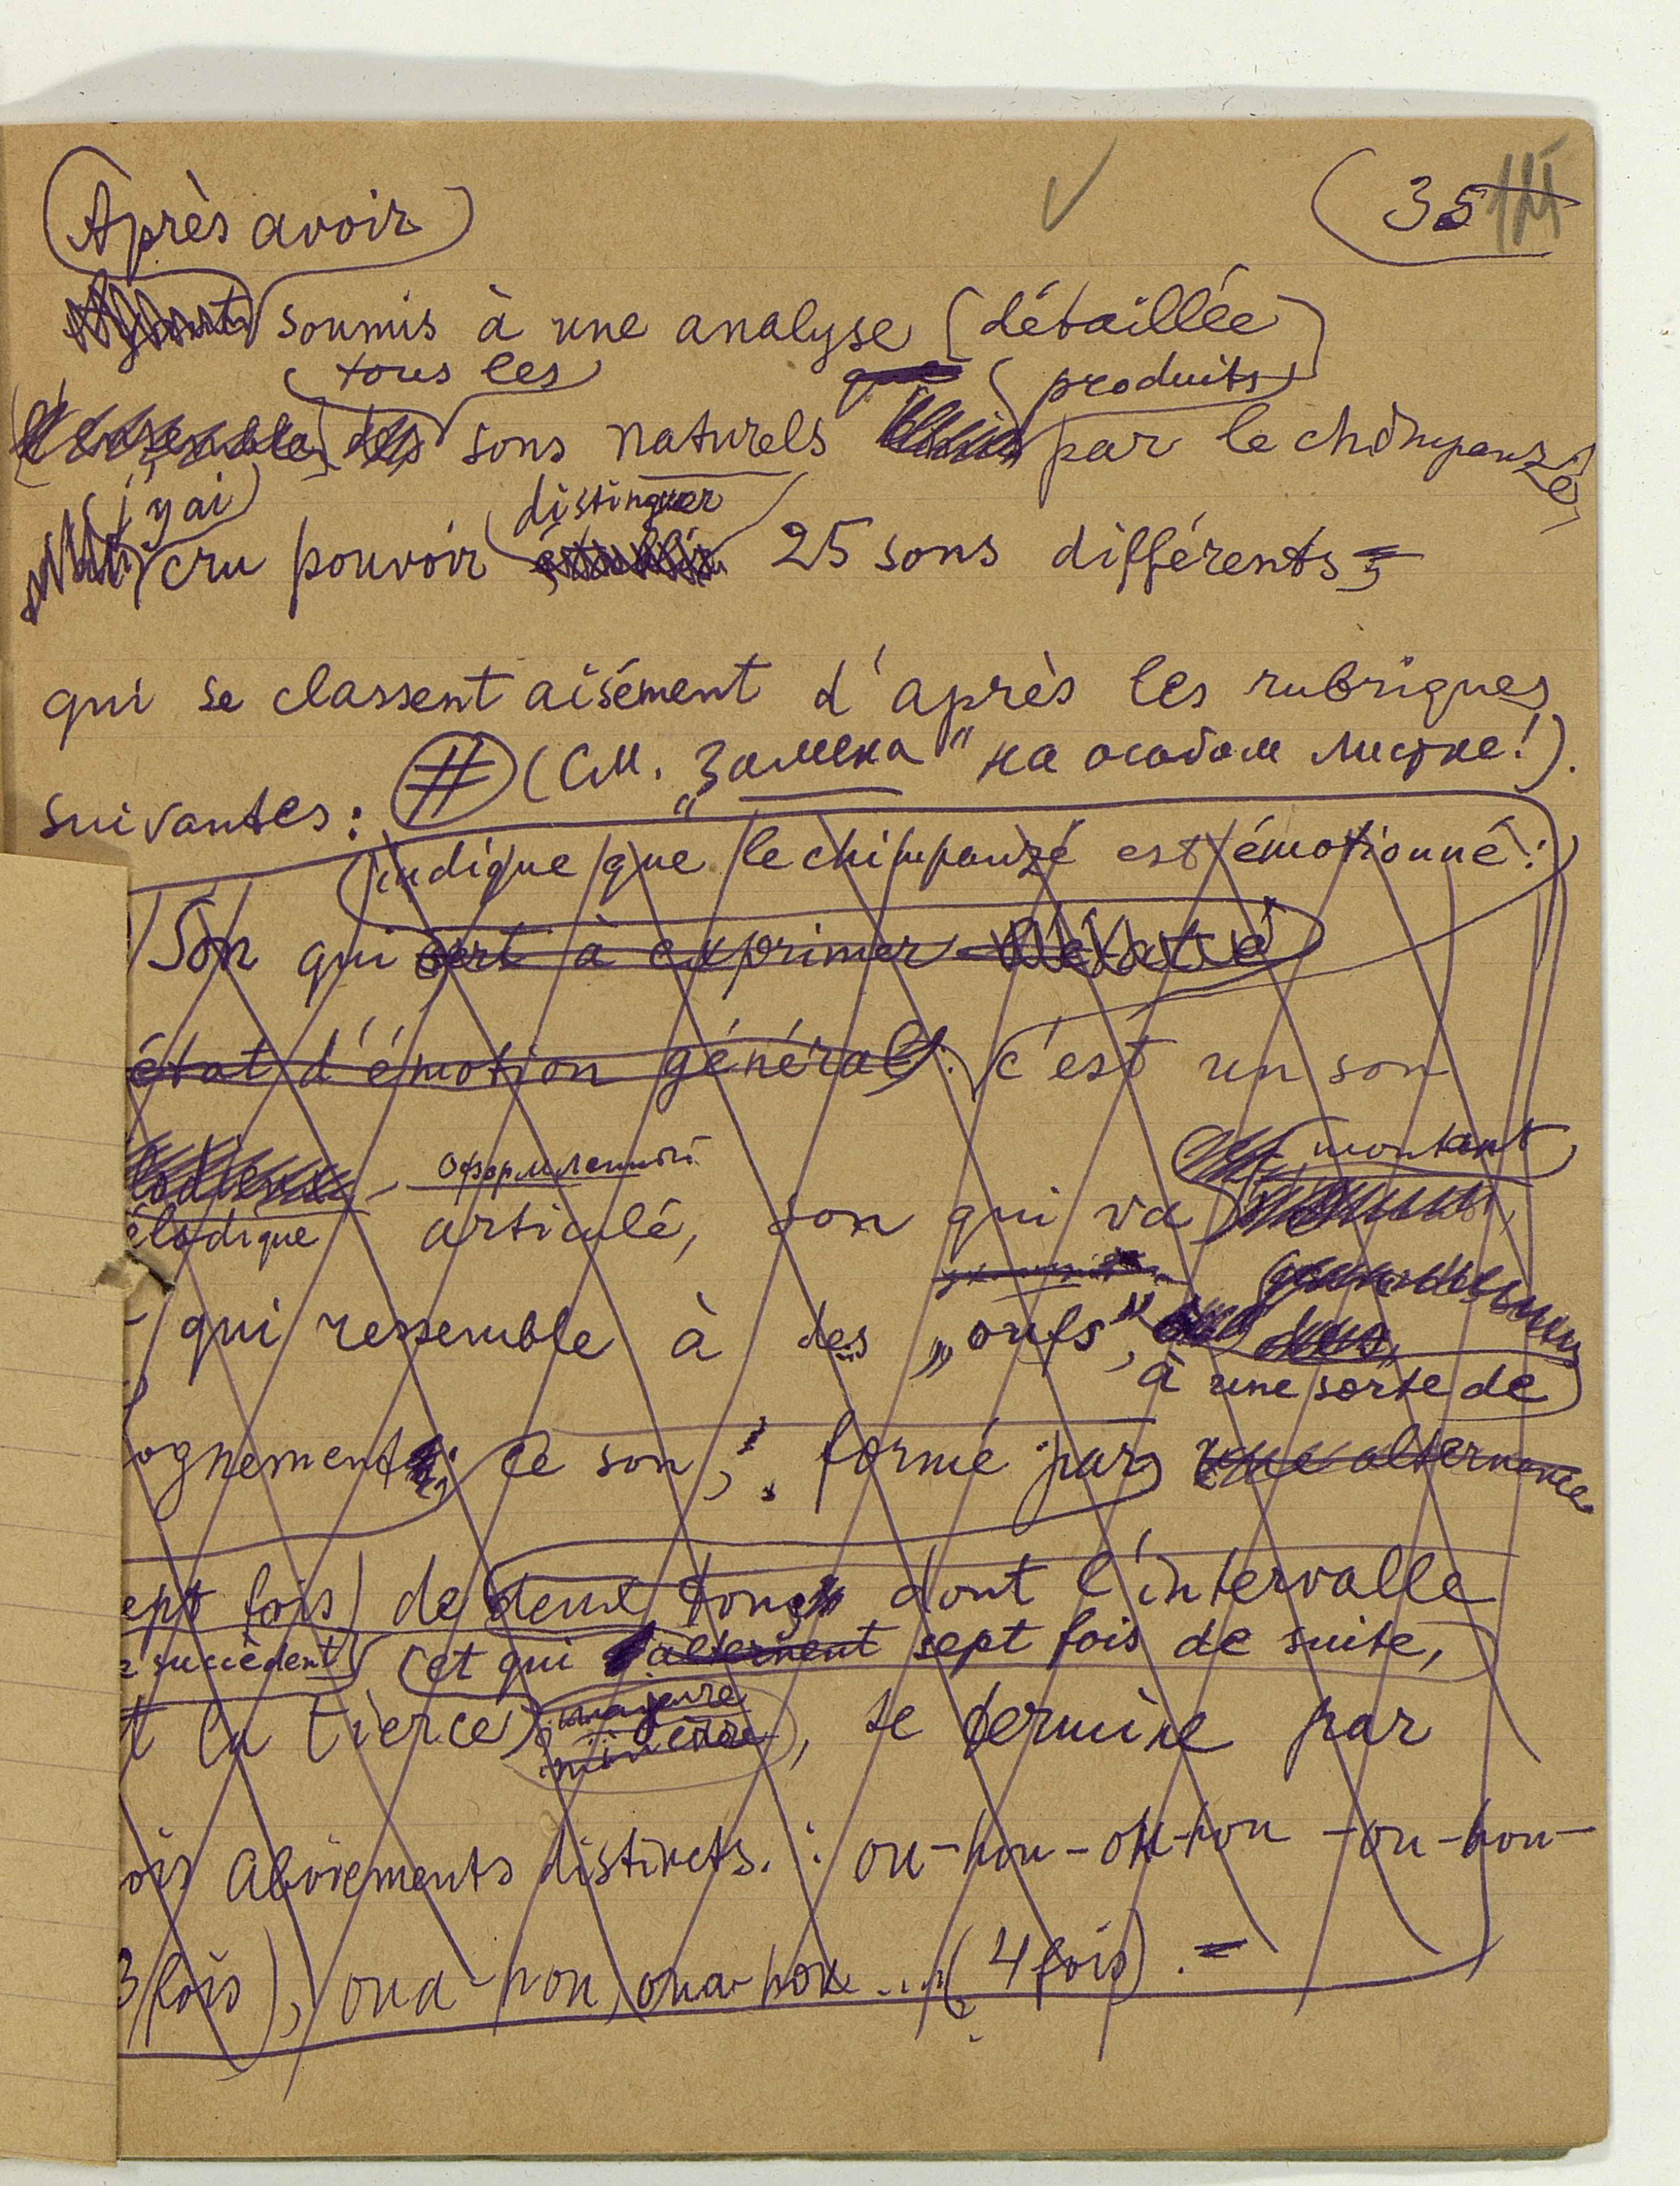 35
Après avoir
soumis à une analyse (détaillée)
tous les
que produits
l'ensemble des sons naturels par le chimpanzé
j'y ai distinguer
cru pouvoir établir 25 sons différents,
qui se classent aisément d'après les rubriques
# (См. „Замена“ на особом листке!).
suivantes:
indique que le chimpanzé est émotionné:
Son qui sert à exprimer
état d'émotion général: c'est un son
оформленный montant
élodique articulé, son qui va
qui ressemble à des „oufs“,
à une sorte de
ognement; ce son, formé par une alternance
ept fois) de deux tons dont l'intervalle
e succèdent (et qui alternent sept fois de suite,
majeure
t la tierce mineure, se termine par
ois aboiements distincts: ou-hou-ou-hou-ou-hou-
3 fois), oua-hou, oua-hou....(4 fois).=